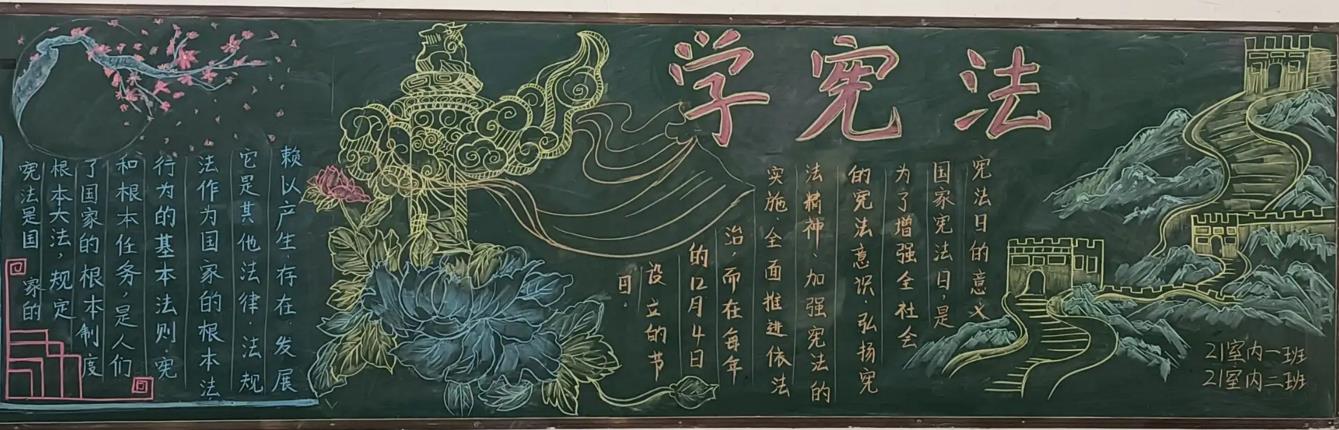 学宪法
宪法是国 家的
根本大法,规定
了国家的根本制度
和根本任务,是人们
行为的基本法则.宪
法作为国家的根本法
它是其他法律.法规
赖以产生.存在.发展
宪法日的意义
国家宪法日,是
为了增强全社会
的宪法意识.弘扬宪
法精神、加强宪法的
实施.全面推进依法
治,而在每年
的12月4日
设立的节
日.
21室内一班
21室内二班